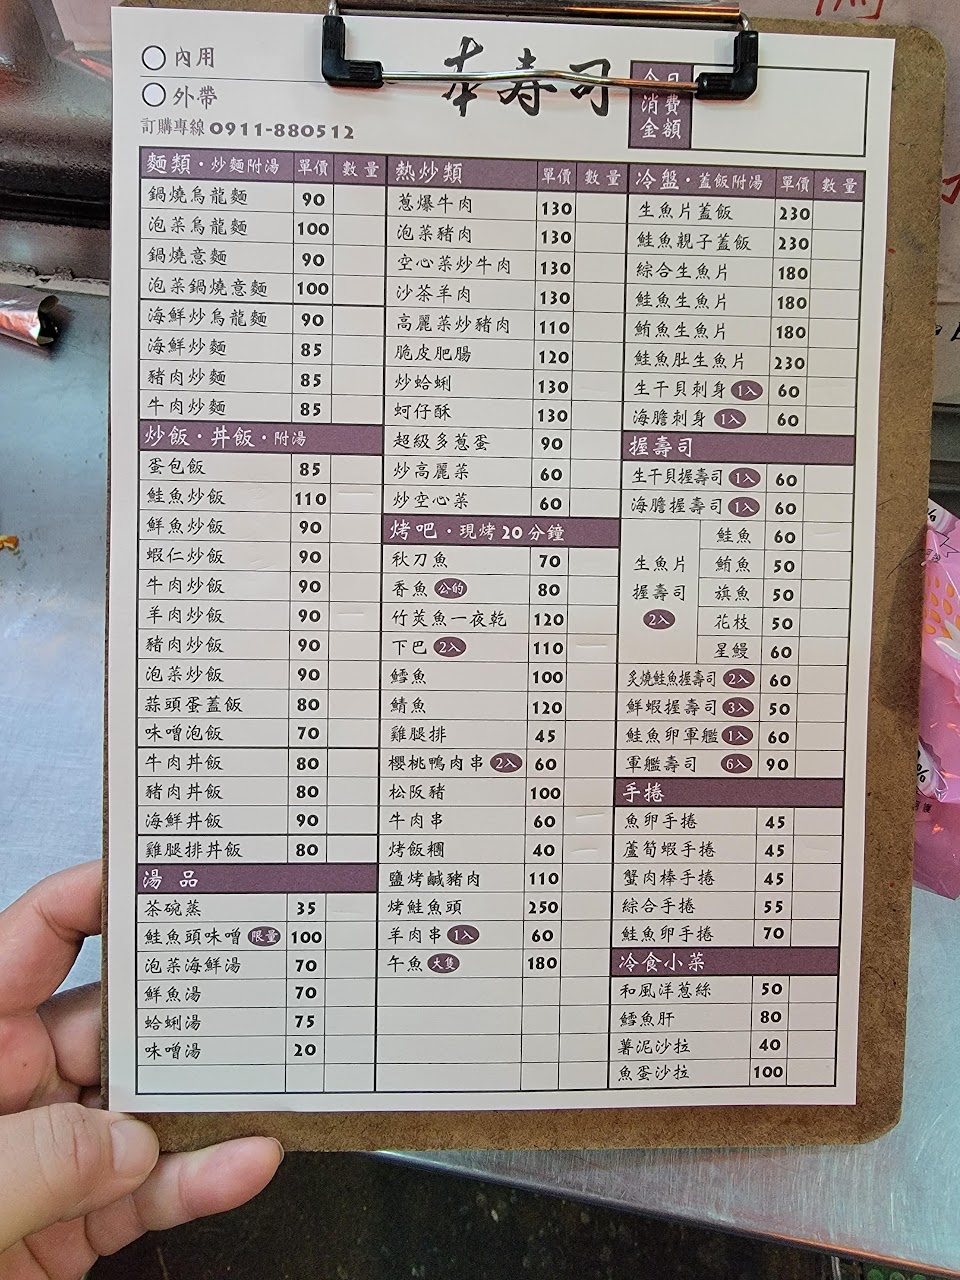 內用
外帶
訂購專線 0911-880512
本壽司
今日
消費
金額
麵類・炒麵附湯 單價 數量
鍋燒烏龍麵 90
泡菜烏龍麵 100
鍋燒意麵 90
泡菜鍋燒意麵 100
海鮮炒烏龍麵 90
海鮮炒麵 85
豬肉炒麵 85
牛肉炒麵 85
炒飯・丼飯・附湯
蛋包飯 85
鮭魚炒飯 110
鮮魚炒飯 90
蝦仁炒飯 90
牛肉炒飯 90
羊肉炒飯 90
豬肉炒飯 90
泡菜炒飯 90
蒜頭蛋蓋飯 80
味噌泡飯 70
牛肉丼飯 80
豬肉丼飯 80
海鮮丼飯 90
雞腿排丼飯 80
湯 品
茶碗蒸 35
鮭魚頭味噌 限量 100
泡菜海鮮湯 70
鮮魚湯 70
蛤蜊湯 75
味噌湯 20
熱炒類 單價 數量
蔥爆牛肉 130
泡菜豬肉 130
空心菜炒牛肉 130
沙茶羊肉 130
高麗菜炒豬肉 110
脆皮肥腸 120
炒蛤蜊 130
蚵仔酥 130
超級多蔥蛋 90
炒高麗菜 60
炒空心菜 60
烤吧・現烤20分鐘
秋刀魚 70
香魚 公的 80
竹莢魚一夜乾 120
下巴 2入 110
鱈魚 100
鯖魚 120
雞腿排 45
櫻桃鴨肉串 2入 60
松阪豬 100
牛肉串 60
烤飯糰 40
鹽烤鹹豬肉 110
烤鮭魚頭 250
羊肉串 1入 60
午魚 大隻 180
冷盤・蓋飯附湯 單價 數量
生魚片蓋飯 230
鮭魚親子蓋飯 230
綜合生魚片 180
鮭魚生魚片 180
鮪魚生魚片 180
鮭魚肚生魚片 230
生干貝刺身 1入 60
海膽刺身 1入 60
握壽司
生干貝握壽司 1入 60
海膽握壽司 1入 60
生魚片
握壽司
2入
鮭魚 60
鮪魚 50
旗魚 50
花枝 50
星鰻 60
炙燒鮭魚握壽司 2入 60
鮮蝦握壽司 3入 50
鮭魚卵軍艦 1入 60
軍艦壽司 6入 90
手捲
魚卵手捲 45
蘆筍蝦手捲 45
蟹肉棒手捲 45
綜合手捲 55
鮭魚卵手捲 70
冷食小菜
和風洋蔥絲 50
鱈魚肝 80
薯泥沙拉 40
魚蛋沙拉 100